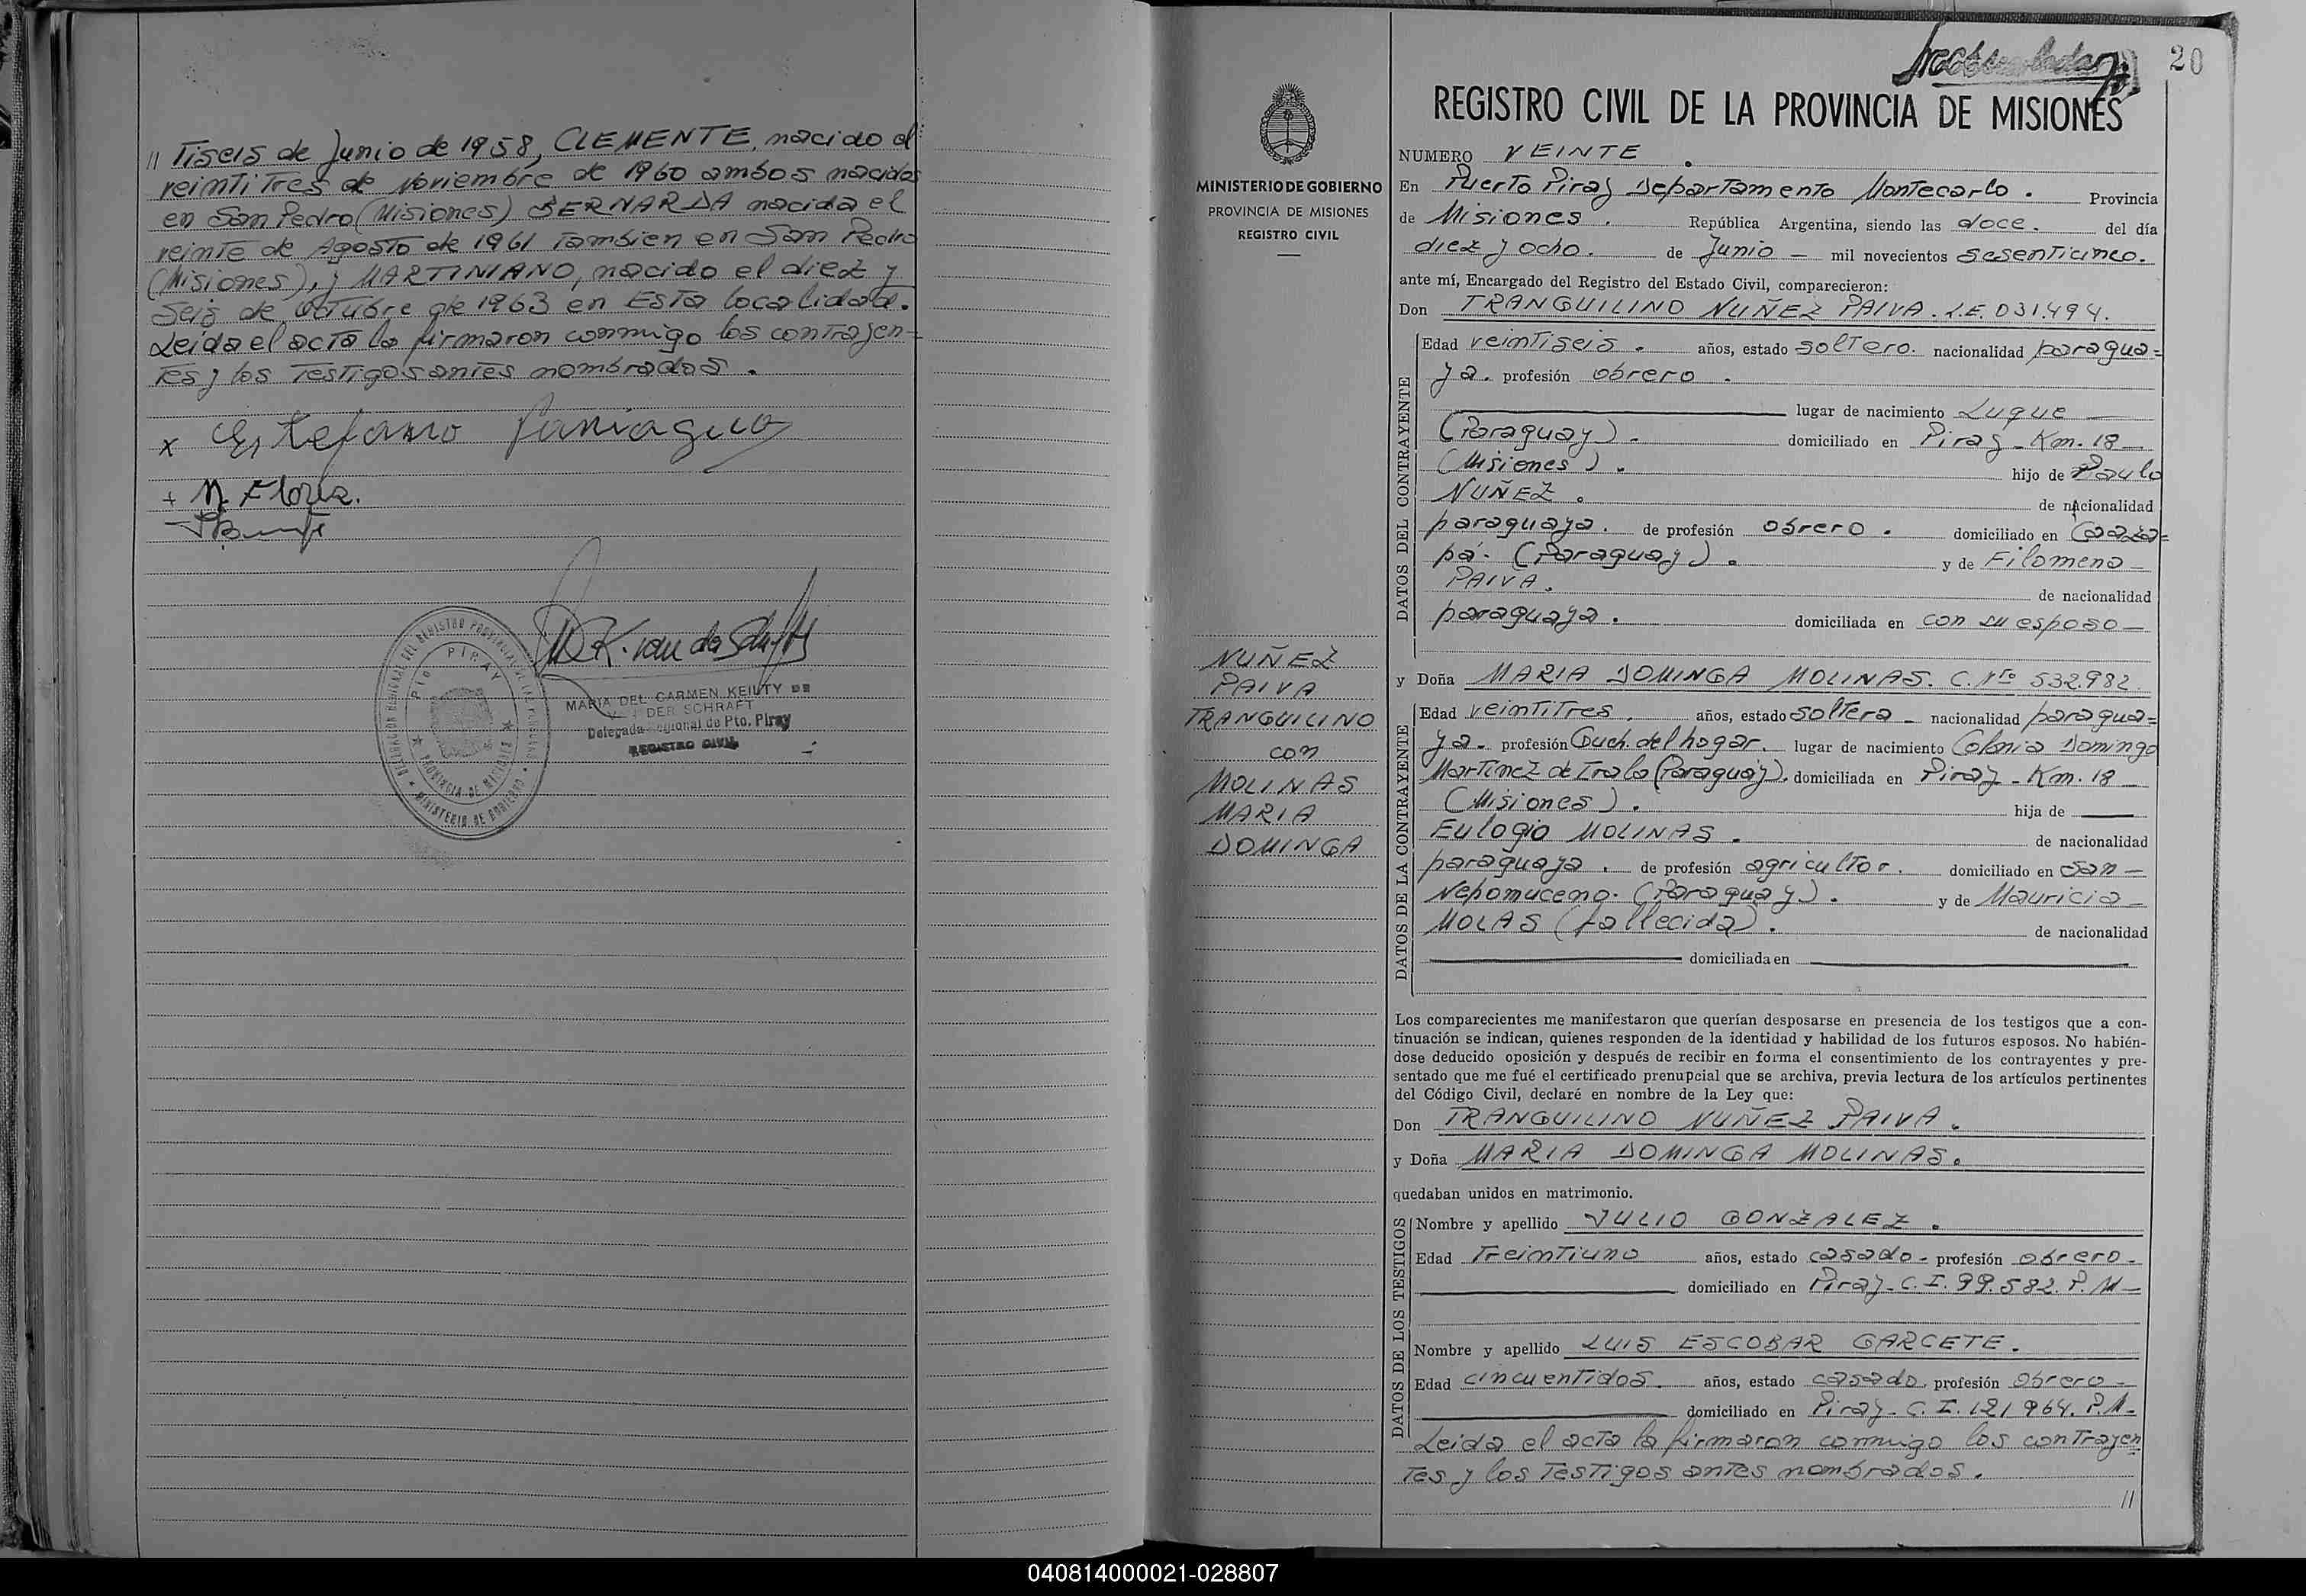 // Tiseis de Junio de 1958, CLEMENTE, nacido el
veintitres de Noviembre de 1960 ambos nacidos
en San Pedro (Misiones) BERNARDA nacida el
veinte de Agosto de 1961 Tambien en San Pedro
(Misiones), y MARTINIANO, nacido el diez y
seis de Octubre de 1963 en Esta localidad.
Leida el acta la firmaron conmigo los contrayen=
tes y los Testigos antes nombrados.
x Estefano Paniagua
+ N Flores.
PIRAY
PROVINCIA DE MISIONES
MINISTERIO DE GOBIERNO
MARIA DEL CARMEN KEILTY DE
DER SCHRAFT
Delegada Regional de Pto. Piray
REGISTRO CIVIL
20
MINISTERIO DE GOBIERNO
PROVINCIA DE MISIONES
REGISTRO CIVIL
NUÑEZ
PAIVA
TRANQUILINO
con
MOLINAS
MARIA
DOMINGA
REGISTRO CIVIL DE LA PROVINCIA DE MISIONES
NUMERO VEINTE.
En Puerto Piray Departamento Montecarlo. Provincia
de Misiones. República Argentina, siendo las doce. del día
diez y ocho. de Junio - mil novecientos sesenticinco.
ante mí, Encargado del Registro del Estado Civil, comparecieron:
Don TRANQUILINO NUÑEZ PAIVA. L.E. 031.494.
DATOS DEL CONTRAYENTE
Edad veintiseis. años, estado soltero. nacionalidad paragua=
ya. profesión obrero.
lugar de nacimiento Luque
(Paraguay). domiciliado en Piray - Km. 18
(Misiones). hijo de Paulo
NUÑEZ. de nacionalidad
paraguaya. de profesión obrero. domiciliado en Caaza=
pá. (Paraguay). y de Filomena
PAIVA. de nacionalidad
paraguaya. domiciliada en con su esposo
y Doña MARIA DOMINGA MOLINAS. C. Nro 532.982
DATOS DE LA CONTRAYENTE
Edad veintitres. años, estado soltera - nacionalidad paragua=
ya. profesión Queh. del hogar. lugar de nacimiento Colonia Domingo
Martinez de Irala (Paraguay). domiciliada en Piray - Km. 18
(Misiones). hija de
Eulogio MOLINAS. de nacionalidad
paraguaya. de profesión agricultor. domiciliado en San
Nepomuceno. (Paraguay). y de Mauricia
MOLAS (fallecida). de nacionalidad
domiciliada en
Los comparecientes me manifestaron que querían desposarse en presencia de los testigos que a con-
tinuación se indican, quienes responden de la identidad y habilidad de los futuros esposos. No habién-
dose deducido oposición y después de recibir en forma el consentimiento de los contrayentes y pre-
sentado que me fué el certificado prenupcial que se archiva, previa lectura de los artículos pertinentes
del Código Civil, declaré en nombre de la Ley que:
Don TRANQUILINO NUÑEZ PAIVA.
y Doña MARIA DOMINGA MOLINAS.
quedaban unidos en matrimonio.
DATOS DE LOS TESTIGOS
Nombre y apellido JULIO GONZALEZ.
Edad Treintiuno años, estado casado - profesión obrero-
domiciliado en Piray - C.I. 99.582. P.M
Nombre y apellido LUIS ESCOBAR GARCETE.
Edad cincuentidos. años, estado casado. profesión obrero-
domiciliado en Piray - C.I. 121964. P.M-
Leida el acta la firmaron conmigo los contrayen=
tes y los Testigos antes nombrados.
//
040814000021-028807